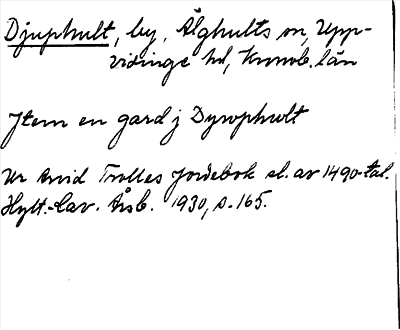 Djuphult, by, Älghults sn, Upp-
vidinge hd, Kronob. län
Jtem en gard j Dywphwlt
Ur Arvid Trolles jordebok sl. av 1490-tal.
Hylt.-Cav. Årsb. 1930, s. 165.